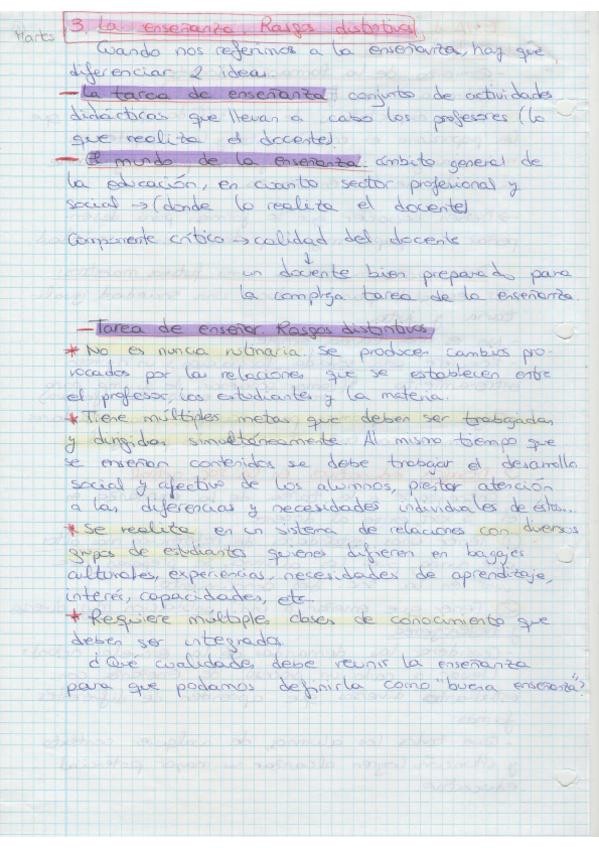 Martes
3. La enseñanza. Rasgos distintivos
Cuando nos referimos a la enseñanza, hay que
diferenciar 2 ideas
- La tarea de enseñanza conjunto de actividades
didácticas que llevan a cabo los profesores (lo
que realiza el docente).
- El mundo de la enseñanza ámbito general de
la educación, en cuanto sector profesional y
social → (donde lo realiza el docente)
Componente crítico → calidad del docente
↓
un docente bien preparado para
la compleja tarea de la enseñanza.
- Tarea de enseñar. Rasgos distintivos
* No es nunca rutinaria. Se producen cambios pro-
vocados por las relaciones que se establecen entre
el profesor, los estudiantes y la materia.
* Tiene múltiples metas que deben ser trabajadas
y dirigidas simultáneamente. Al mismo tiempo que
se enseñan contenidos se debe trabajar el desarrollo
social y afectivo de los alumnos, prestar atención
a las diferencias y necesidades individuales de estos...
* Se realiza en un sistema de relaciones con diversos
grupos de estudiantes quienes difieren en bagajes
culturales, experiencias, necesidades de aprendizaje,
interés, capacidades, etc
* Requiere múltiples clases de conocimiento que
deben ser integrados.
¿Qué cualidades debe reunir la enseñanza
para que podamos definirla como "buena enseñanza"?